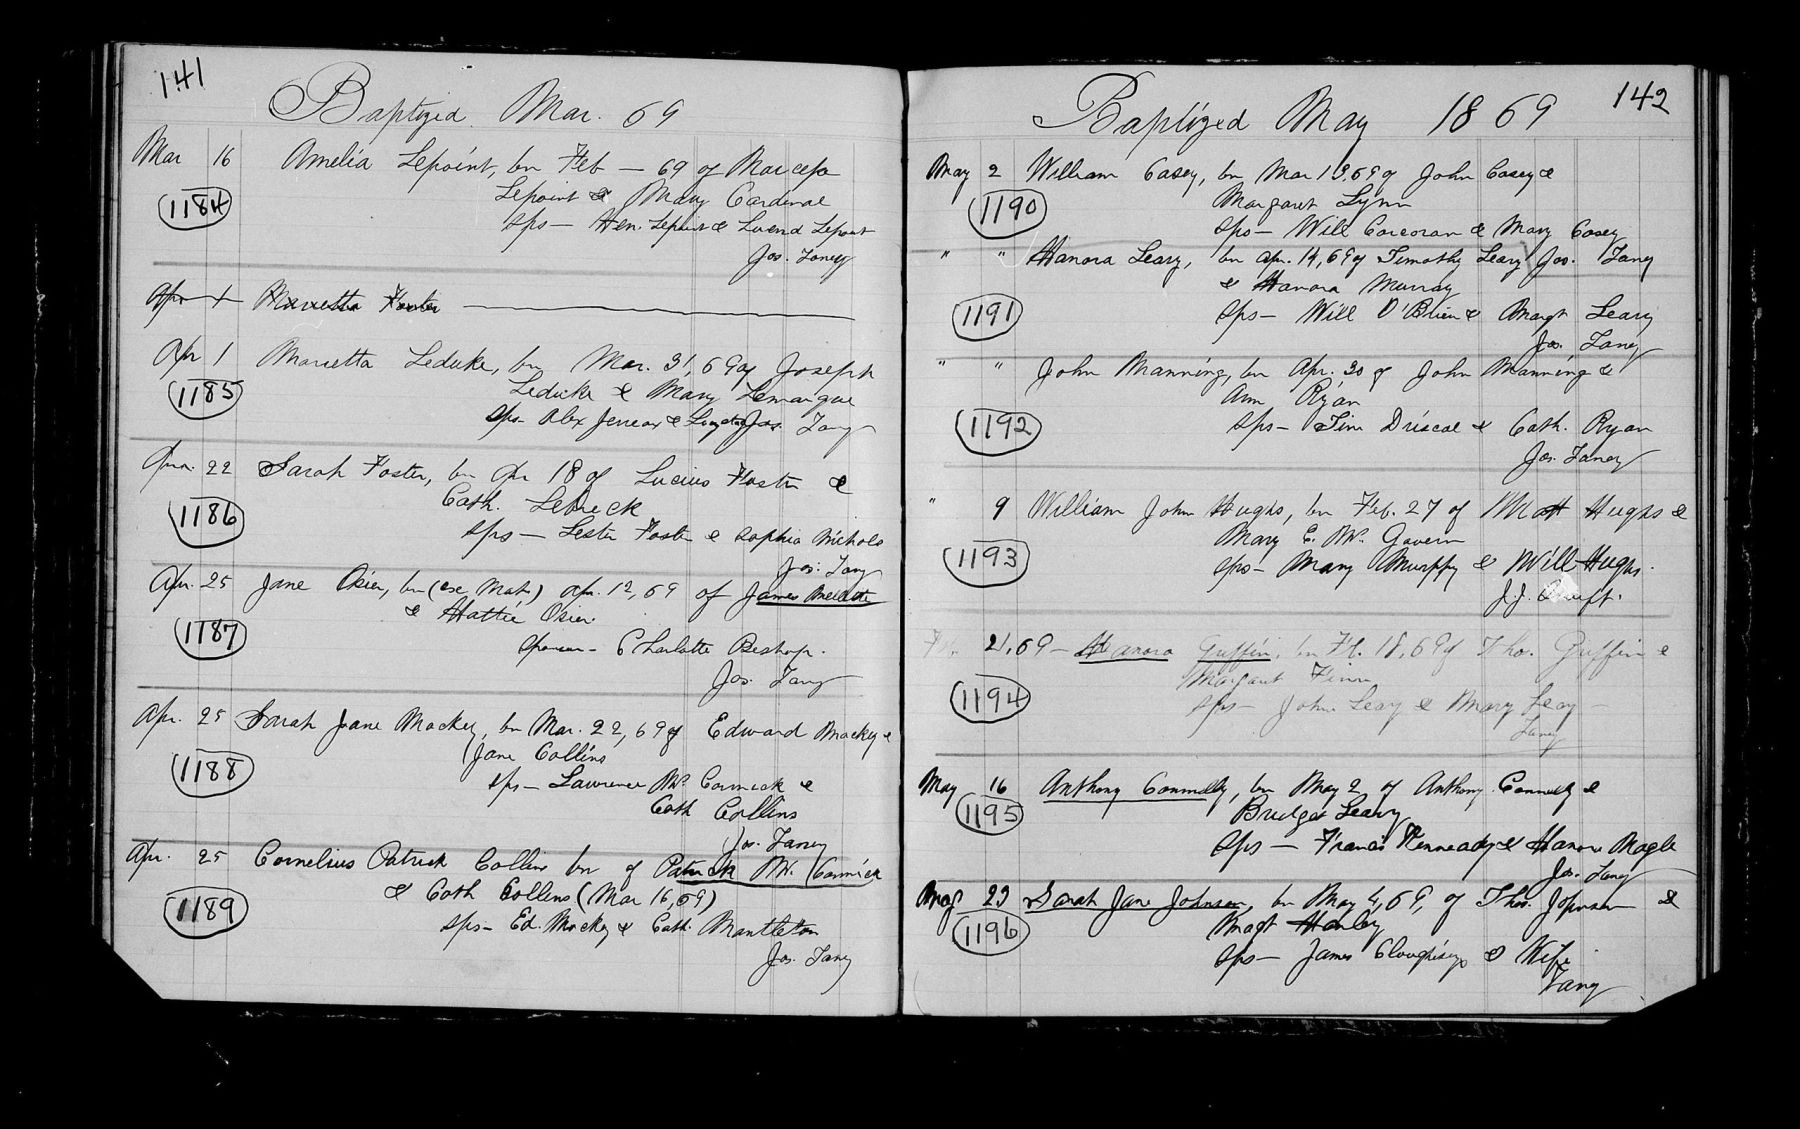 141
Baptized Mar. 69
Mar 16 Amelia Lepoint, bn Feb — 69 of
1184
Lepoint & Mary Cardinal
sps — Hen. Lepoint & Lepoint
Jos. Taney
Apr 1 Marietta Foster
Apr 1 Marietta Leduke, bn Mar. 31, 69 of Joseph
1185
Leduke & Mary Lemaigue
sps - Alex & Jos. Taney
Apr. 22 Sarah Foster, bn Apr 18 of Lucius Foster &
1186
Cath. Lebreck
sps — Lester Foster & Sophia Nichols
Jos. Taney
Apr. 25 Jane Osier, bn (ex Mat.) Apr. 12, 69 of James
1187
& Hattie Osier.
Sponsor - Charlotte Bishop.
Jos. Taney
Apr. 25 Sarah Jane Mackey, bn Mar. 22, 69 of Edward Mackey &
1188
Jane Collins
sps — Lawrence Mc. Cormick &
Cath Collins
Jos. Taney
Apr. 25 Cornelius Patrick Collins bn of Patrick Mc. Cormick
1189
& Cath Collins (Mar 16, 69)
sps - Ed. Mackey & Cath. Mantleton
Jos. Taney
142
Baptized May 1869
May 2 William Casey, bn Mar 13, 69 of John Casey &
1190
Margaret Lynn
sps — Will Corcoran & Mary Casey
" " Hanora Leary, bn Apr. 14, 69 of Timothy Leary Jos. Taney
& Hanora Murray
1191
sps — Will O'Brien & Margt Leary
Jos. Taney
" " John Manning, bn Apr. 30 of John Manning &
Ann Ryan
1192
sps — Tim Driscol & Cath. Ryan
Jos. Taney
" 9 William John Hughs, bn Feb. 27 of Matt Hughs &
Mary E. Mc. Govern
1193
sps — Mary Murphy & Will Hughs.
J.J.
Feb. 21, 69 — Hanora Griffin, bn Fb. 18, 69 of Thos. Griffin &
Margaret Finn
1194
sps — John Leary & Mary Leary —
Taney
May 16 Anthony Connolly, bn May 2 of Anthony Connolly &
1195
Bridget Leary
sps — Francis Kenneady & Hanora Nagle
Jos. Taney
May 23 Sarah Jane Johnson, bn May 4, 69, of Thos. Johnson &
1196
Margt Hanley
sps — James & Wife.
Taney